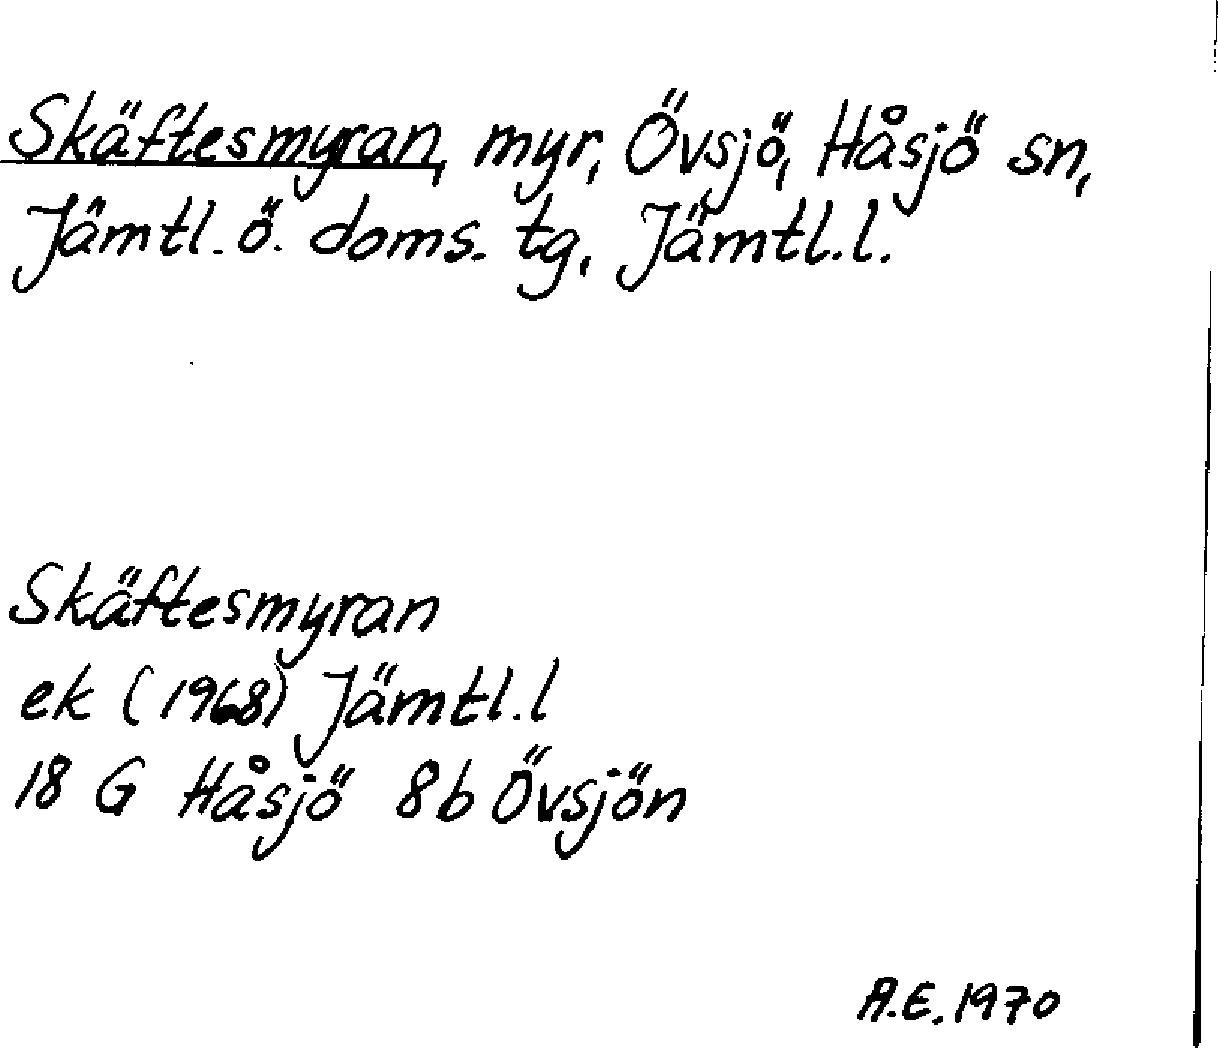 Skäftesmyran, myr, Övsjö, Håsjö sn,
Jämtl. ö. doms. tg, Jämtl.l.
Skäftesmyran
ek (1968) Jämtl.l
18 G Håsjö 8b Övsjön
A.E. 1970